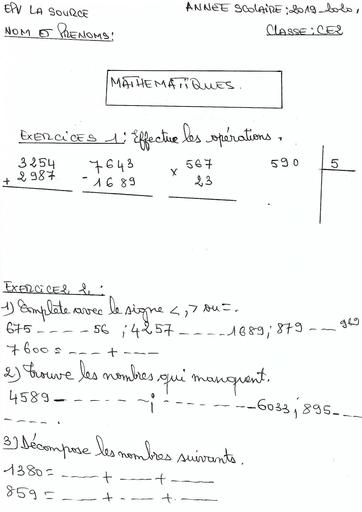 EPV LA SOURCE ANNEE SCOLAIRE : 2019-2020.
NOM ET PRENOMS : CLASSE : CE2
MATHEMATIQUES.
EXERCICES 1 : Effectue les opérations.
3254 7643 567 590 5
+ 2987 - 1689 x 23
EXERCICE 2 :
1) Complète avec le signe <, > ou =.
675 ---- 56 ; 4257 ---- 1689 ; 879 --- 969
7600 = ---- + ----
2) Trouve les nombres qui manquent.
4589 - ------ ; ------ - 6033 ; 895 - --
-----.
3) Décompose les nombres suivants.
1380 = ____ + ____ + ____
859 = ____ + ____ + ____